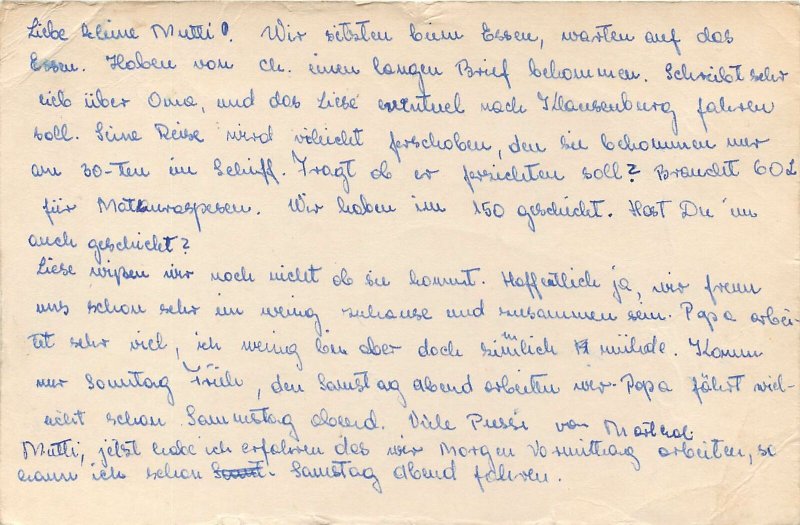 Liebe kleine Mutti! Wir sitsten beim Essen, warten auf das
Essen. Haben von Ch. einen langen Brief bekommen. Schreibt sehr
lieb über Oma, und das Liese eventuel nach Klausenburg fahren
soll. Seine Reise wird vileicht ferschoben, den sie bekommen nur
am 30-ten im Schiff. Fragt ob er fersichten soll? Braucht 60L
für Maturaspesen. Wir haben im 150 geschickt. Hast Du im
auch geschickt?
Liese wißen wir noch nicht ob sie kommt. Hoffentlich ja, wir freun
uns schon sehr im wenig zuhause und zusammen sein. Papa arbei-
tet sehr viel, ich wenig bin aber doch zimlich mühde. Komm
nur Sonntag Früh, den Samstag abend arbeiten wir. Papa fährt viel-
eicht schon Sammstag abend. Viele Pussi von
Mutti, jetst habe ich erfahren das wir Morgen Vormittag arbeiten, so
kann ich schon Samstag abend fahren.